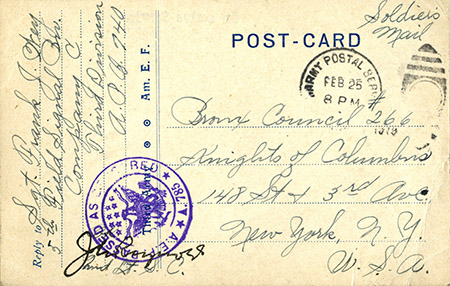 Soldier's
Mail
POST-CARD
ARMY POSTAL SERVICE
FEB 25
8 PM
1919
Bronx Council #266
Knights of Columbus
148 St & 3rd Ave
New York, N.Y.
U.S.A.
Reply to Sgt Frank J.
5th Field Signal Bn.
Company C
Third Division
A.P.O. 740
Am. E. F.
A.E.F. PASSED AS CENSORED
A.785